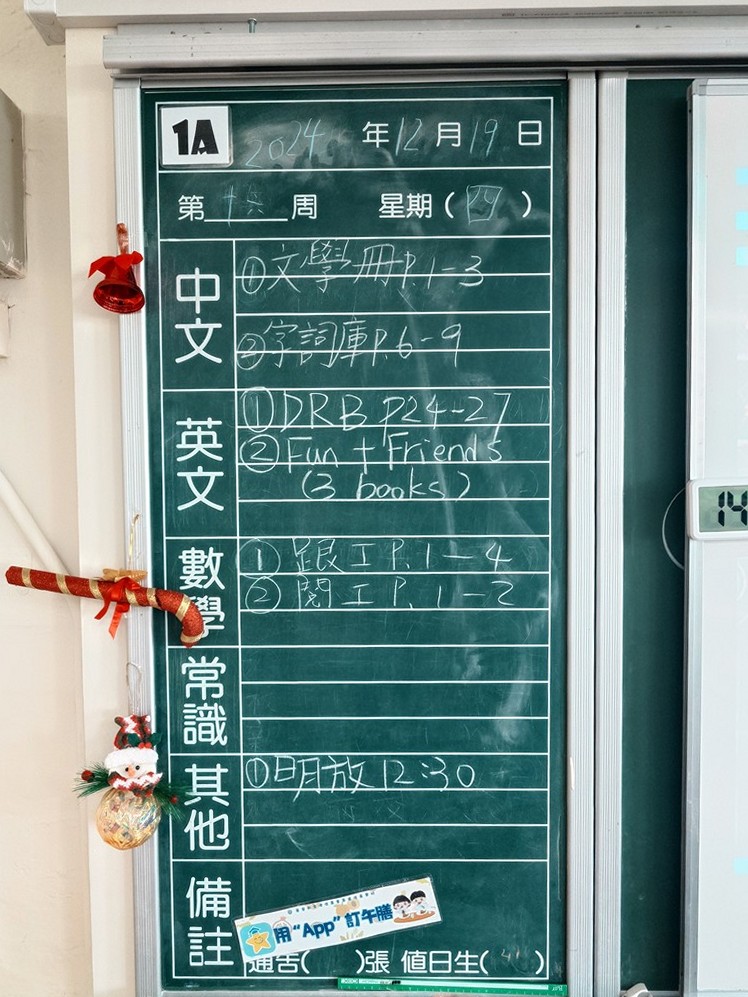 1A 2024 年 12 月 19 日
第 周 星期 ( 四 )
中文
①文學冊 P.1-3
②字詞庫 P.6-9
英文
① DRB P24-27
② Fun + Friends
(3 books)
數學
① 工 P.1-4
② 閱工 P.1-2
常識
其他
①明放 12:30
備註
用“App”訂午膳
通告( )張 值日生( )
14